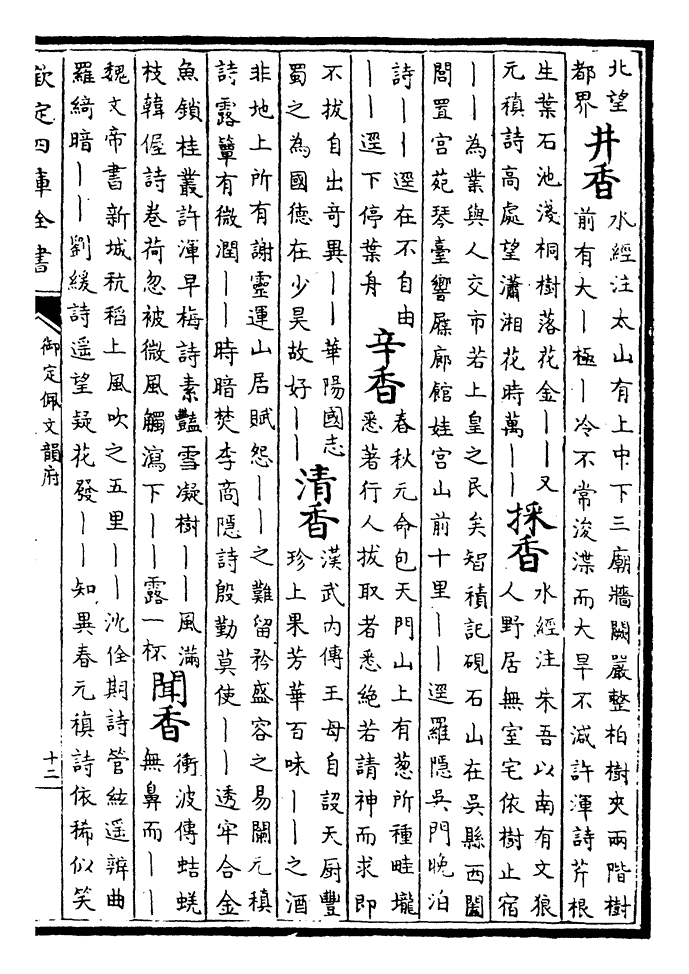 北望
都界
井香
水經注太山有上中下三廟牆闕嚴整柏樹夾兩階樹
前有大丨極丨冷不常浚渫而大旱不減許渾詩芹根
生葉石池淺桐樹落花金丨丨又
元稹詩高處望瀟湘花時萬丨丨
採香
水經注朱吾以南有文狼
人野居無室宅依樹止宿
丨丨為業與人交市若上皇之民矣智積記硯石山在吳縣西闔
閭置宮苑琴臺響屧廊館娃宮山前十里丨丨逕羅隱吳門晚泊
詩丨丨逕在不自由
丨丨逕下停葉舟
辛香
春秋元命包天門山上有葱所種畦壠
悉著行人拔取者悉絶若請神而求即
不拔自出奇異丨丨華陽國志
蜀之為國徳在少昊故好丨丨
清香
漢武內傳王母自設天厨豐
珍上果芳華百味丨丨之酒
非地上所有謝靈運山居賦怨丨丨之難留矜盛容之易闌元稹
詩露簟有微潤丨丨時暗焚李商隱詩殷勤莫使丨丨透牢合金
魚鎖桂叢許渾早梅詩素豔雪凝樹丨丨風滿
枝韓偓詩卷荷忽被微風觸瀉下丨丨露一杯
聞香
衝波傳蛣蜣
無鼻而丨丨
魏文帝書新城秔稻上風吹之五里丨丨沈佺期詩管絃遥辨曲
羅綺暗丨丨劉緩詩遥望疑花發丨丨知異春元稹詩依稀似笑
欽定四庫全書
御定佩文韻府
十二